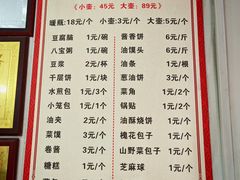 (小壶：45元 大壶：89元)
暖瓶:18元/个 小壶:3元/个 大壶:5元/个
豆腐脑 1元/碗 酱香饼 6元/斤
八宝粥 1元/碗 油馍头 6元/斤
豆浆 2元/杯 油条 1元/根
千层饼 1元/块 葱油饼 3元/个
水煎包 1元/个 菜角 1元/个
小笼包 1元/个 锅贴 2元/个
油夹 2元/个 油酥烧饼 1元/个
菜馍 3元/个 槐花包子 1元/个
卷酱 3元/个 山野菜包子 1元/个
糖糕 1元/个 芝麻球 1元/个